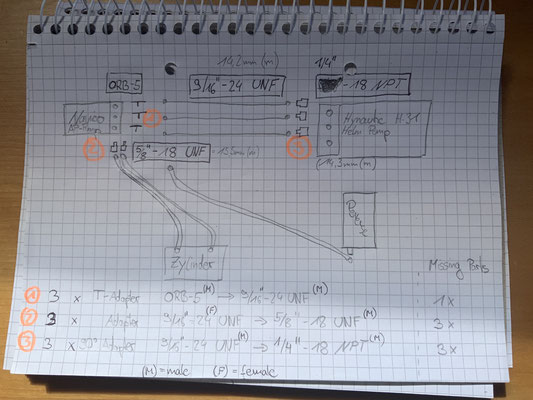 14,2mm(m)
ORB-5
9/16"-24 UNF
1/4"
-18 NPT
AP-Pump
1
Hynautic H-31
Helm Pump
2
5/8"-18 UNF
13,5mm(m)
3
(14,3mm(m)
Reserv.
Zylinder
Missing Parts
1 3 x T-Adapter ORB-5(M) → 9/16"-24 UNF(M) 1x
2 3 x Adapter 9/16"-24 UNF(F) → 5/8"-18 UNF(M) 3x
3 3 x 90° Adapter 9/16"-24 UNF(M) → 1/4"-18 NPT(M) 3x
(M)=male (F)=female